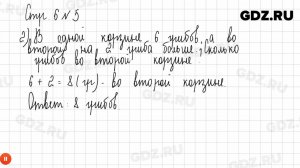 GDZ.RU
Стр. 6 № 5
2) В одной корзине 6 грибов, а во
второй на 2 гриба больше. Сколько
грибов во второй корзине.
6 + 2 = 8 (гр.) - во второй корзине
Ответ: 8 грибов